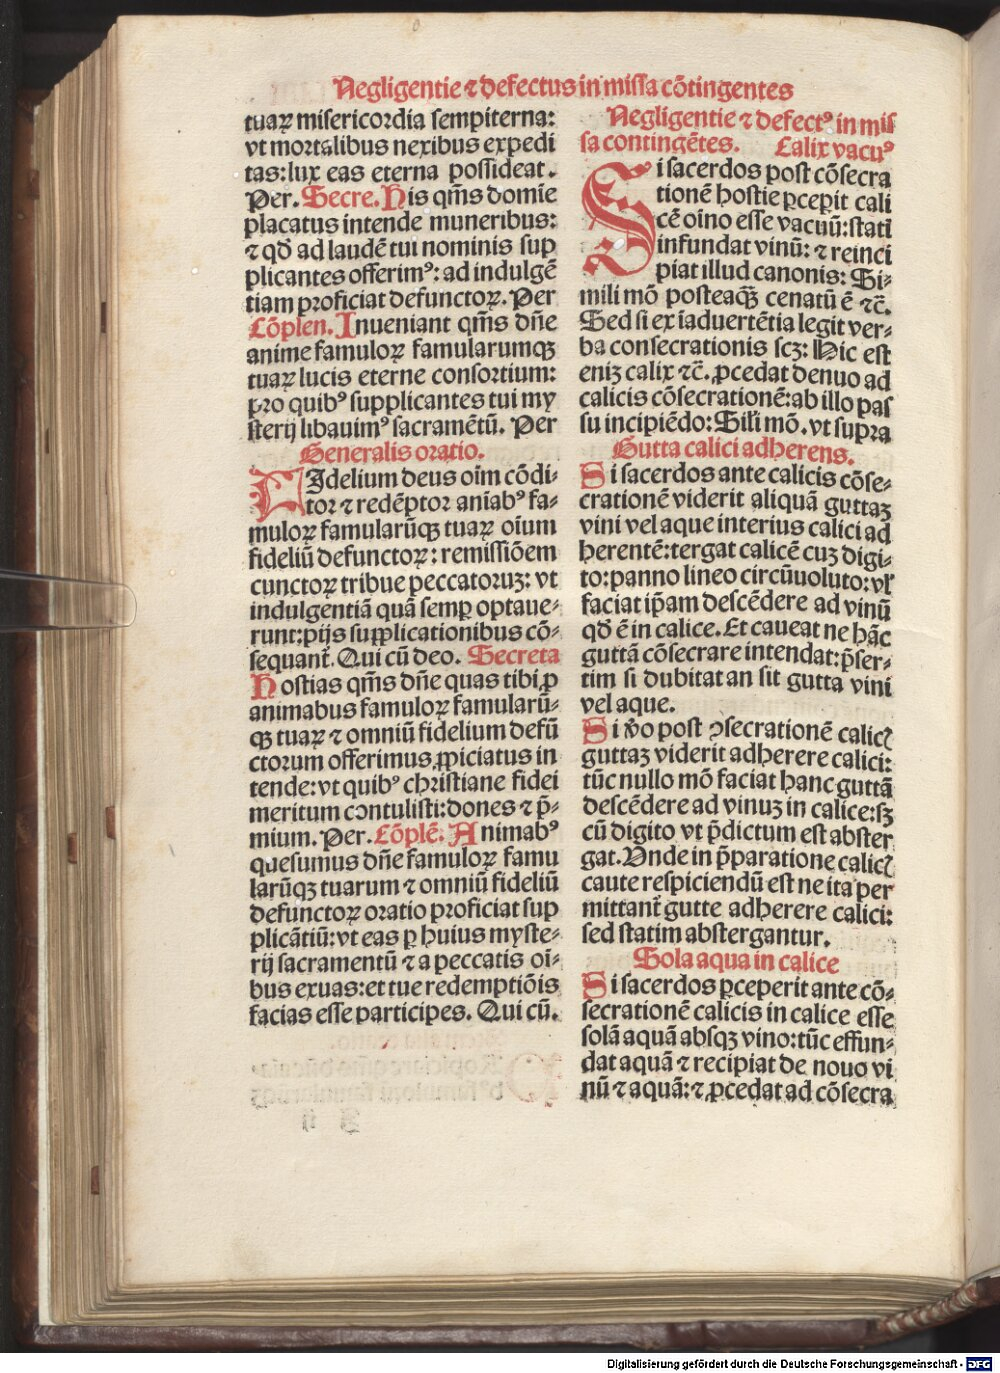 Negligentie ⁊ defectus in missa cõtingentes
tuaꝝ misericordia sempiterna:
vt mortalibus nexibus expedi
tas: lux eas eterna possideat.
Per. Secre. His q̃ms domĩe
placatus intende muneribus:
⁊ qđ ad laudẽ tui nominis sup
plicantes offerimꝰ: ad indulgẽ
tiam proficiat defunctoꝝ. Per
Cõplen. Inueniant q̃ms dñe
anime famuloꝝ famularumqꝫ
tuaꝝ lucis eterne consortium:
pro quibꝰ supplicantes tui my
sterij libauimꝰ sacramẽtũ. Per
Generalis oratio.
FIdelium deus oĩm cõdi⸗
tor ⁊ redẽptor aniabꝰ fa⸗
muloꝝ famularũqꝫ tuaꝝ oĩum
fideliũ defunctoꝝ: remissiõem
cunctoꝝ tribue peccatoruꝫ: vt
indulgentiã quã semꝑ optaue⸗
runt: pijs supplicationibus cõ⸗
sequant᷑. Qui cũ deo. Secreta
Hostias q̃ms dñe quas tibi ꝓ
animabus famuloꝝ famularũ⸗
qꝫ tuaꝝ ⁊ omniũ fidelium defũ
ctorum offerimus ꝓpiciatus in
tende: vt quibꝰ christiane fidei
meritum contulisti: dones ⁊ p̃⸗
mium. Per. Cõplẽ. Animabꝰ
quesumus dñe famuloꝝ famu
larũqꝫ tuarum ⁊ omniũ fideliũ
defunctoꝝ oratio proficiat sup
plicãtiũ: vt eas ꝑ huius myste⸗
rij sacramentũ ⁊ a peccatis oĩ⸗
bus exuas: et tue redemptiõis
facias esse participes. Qui cũ.
Negligentie ⁊ defectꝰ in mis
sa contingẽtes. Calix vacuꝰ
Si sacerdos post cõsecra
tionẽ hostie ꝑcepit cali
cẽ oĩno esse vacuũ: stati
infundat vinũ: ⁊ reinci
piat illud canonis: Si⸗
mili mõ posteaq̃ꝫ cenatũ ẽ ⁊c̃.
Sed si ex ĩaduertẽtia legit ver⸗
ba consecrationis scꝫ: Hic est
eniꝫ calix ⁊c̃. ꝓcedat denuo ad
calicis cõsecrationẽ: ab illo pas
su incipiẽdo: Sil̃i mõ. vt supra
Gutta calici adherens.
Si sacerdos ante calicis cõse⸗
crationẽ viderit aliquã guttaꝫ
vini vel aque interius calici ad
herentẽ: tergat calicẽ cuꝫ digi⸗
to: panno lineo circũuoluto: vł
faciat ip̃am descẽdere ad vinũ
qđ ẽ in calice. Et caueat ne hãc
guttã cõsecrare intendat: p̃ser⸗
tim si dubitat an sit gutta vini
vel aque.
Si ṽo post ꝯsecrationẽ calicꝭ
guttaꝫ viderit adherere calici:
tũc nullo mõ faciat hanc guttã
descẽdere ad vinuꝫ in calice: sꝫ
cũ digito vt p̃dictum est abster
gat. Vnde in p̃paratione calicꝭ
caute respiciendũ est ne ita per
mittant᷑ gutte adherere calici:
sed statim abstergantur.
Sola aqua in calice
Si sacerdos ꝑceperit ante cõ⸗
secrationẽ calicis in calice esse
solã aquã absqꝫ vino: tũc effun⸗
dat aquã ⁊ recipiat de nouo vi
nũ ⁊ aquã: ⁊ ꝓcedat ad cõsecra
Digitalisierung gefördert durch die Deutsche Forschungsgemeinschaft - DFG